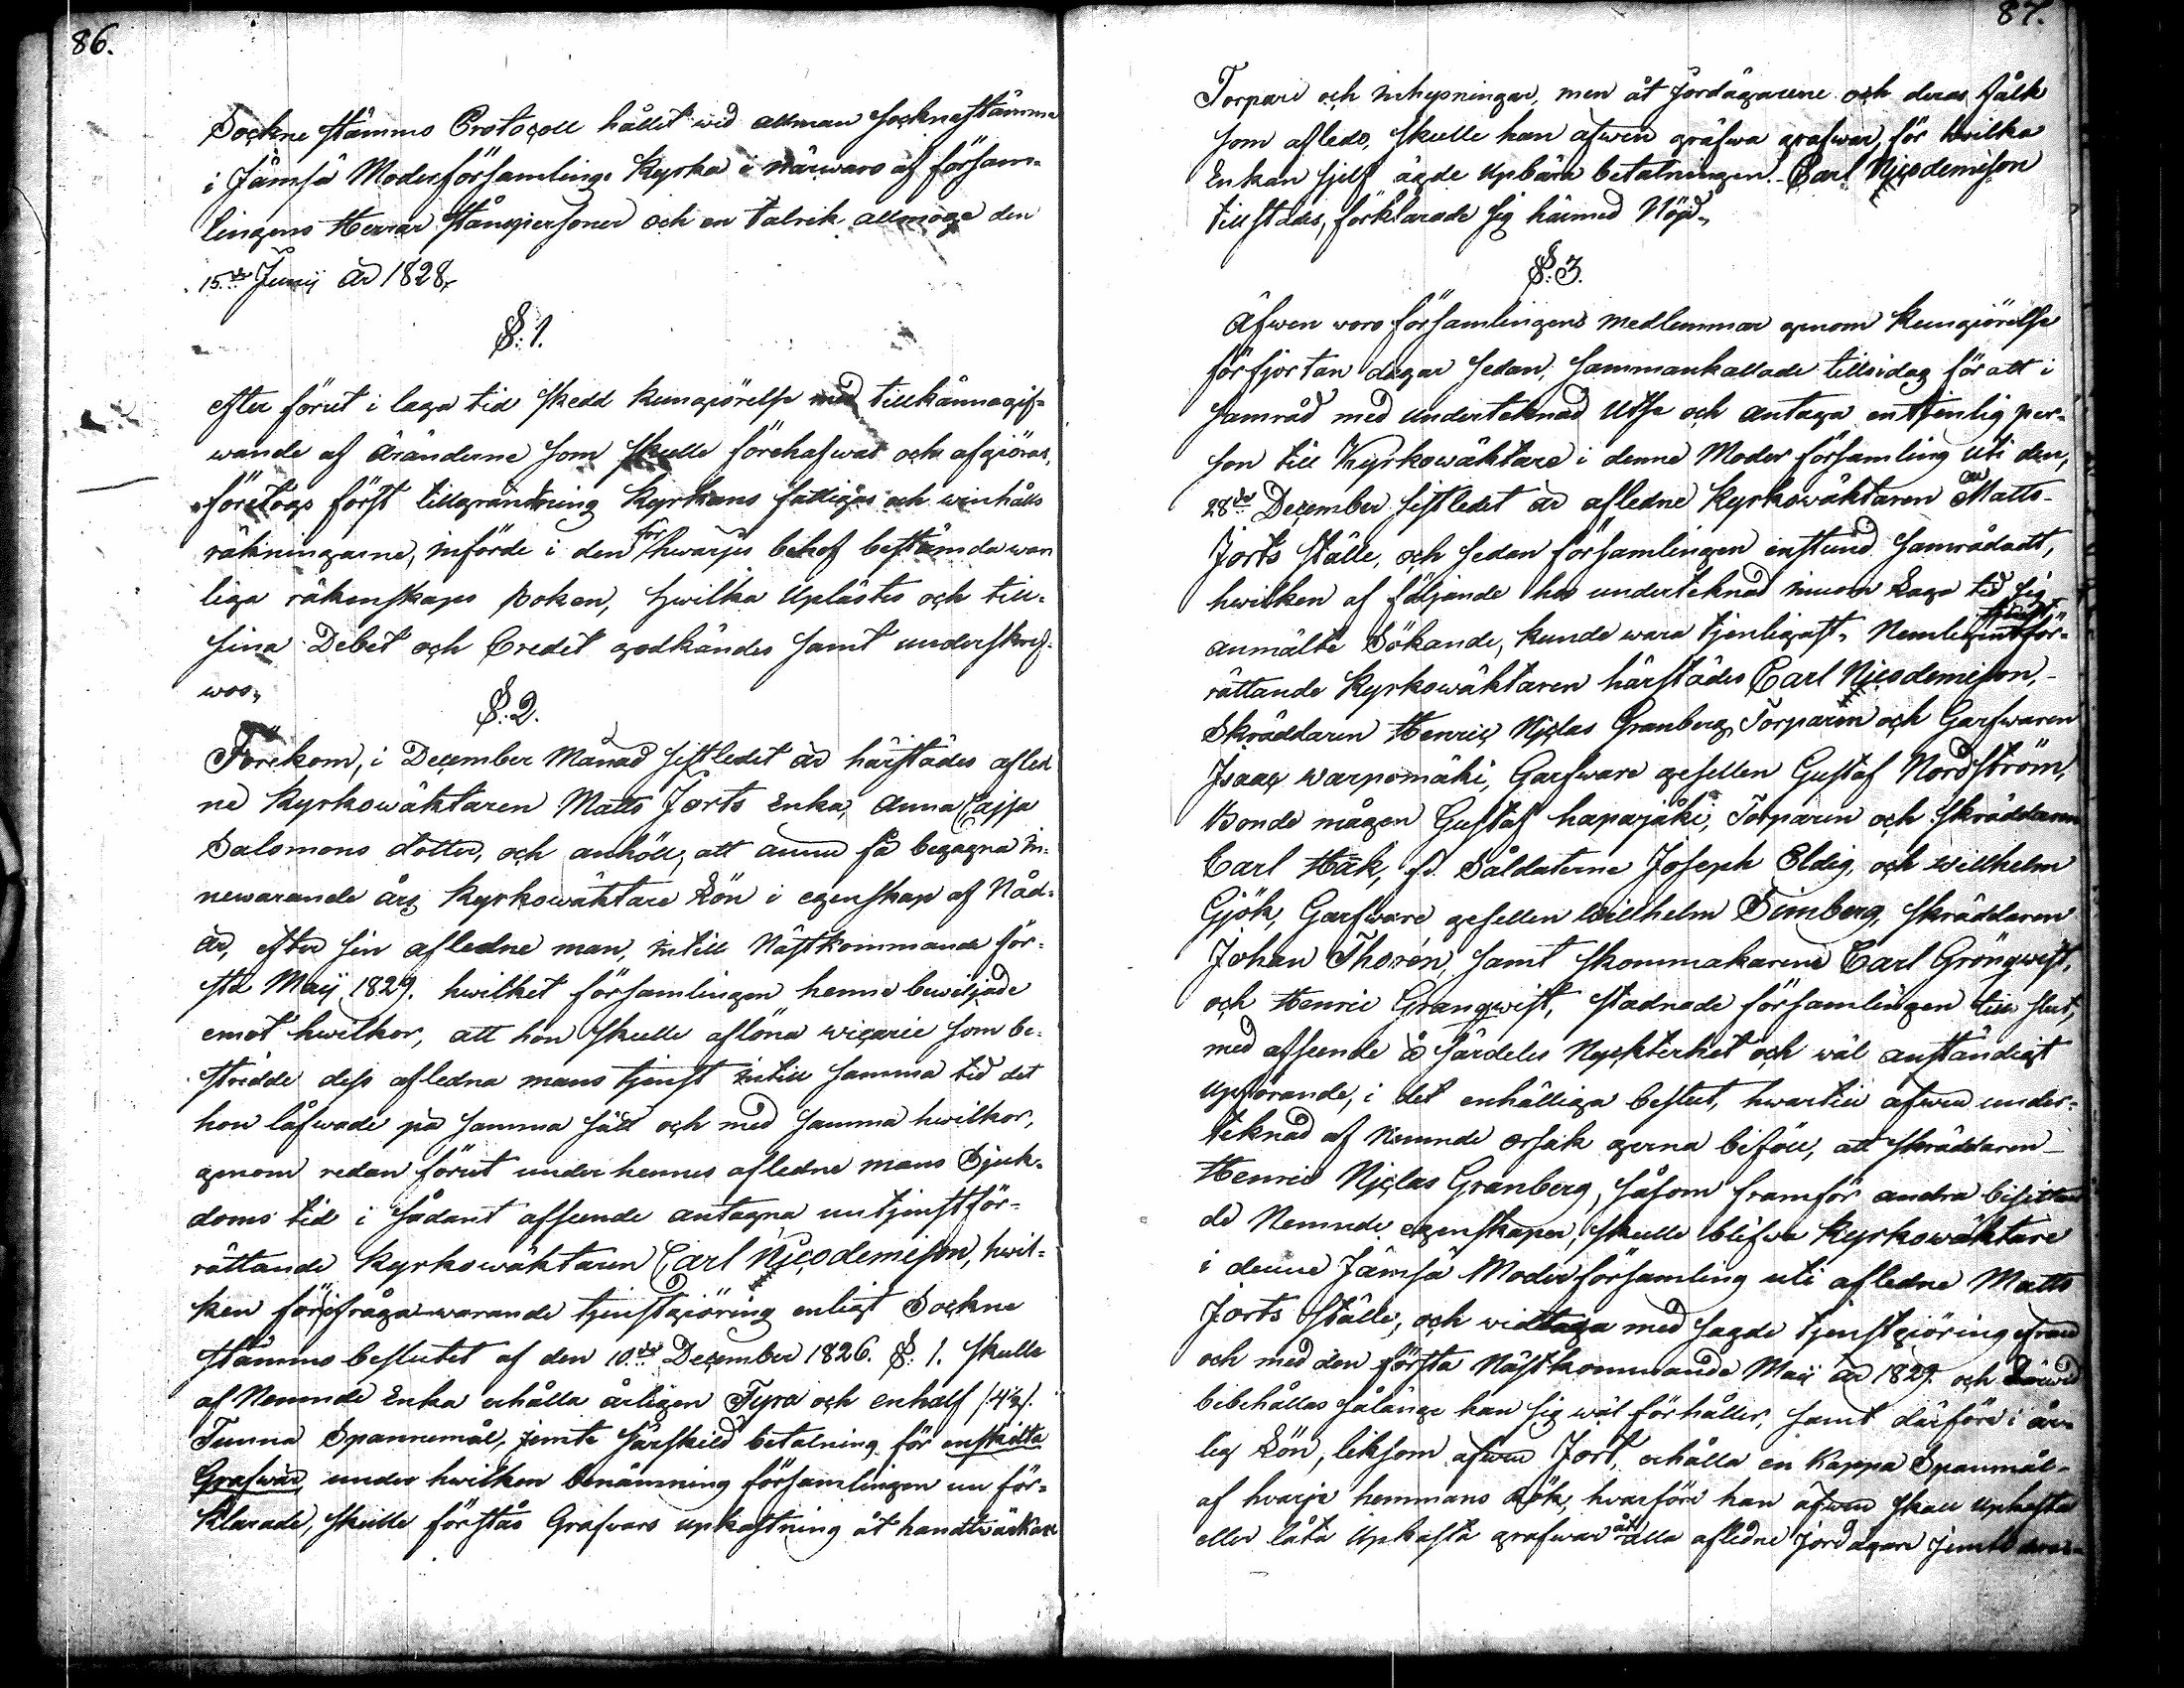 86.
Sockne stämms Protocoll hållit wid allmän Socknestämma
i Jämsä Moderförsamlings Kyrka i närwaro af försam-
lingens Herrar Ståndspersoner och en talrik allmoge den
15de Junij år 1828,
§. 1.
efter förut i laga tid skedd kungiörelse med tillkännagif-
wande af Äränderne som skulle förehafwas och afgiöras,
företogs först till grandtning Kyrkans fattigas och winhålls
räkningarne, införde i den för hwarjes behof bestämda wan
liga räkenskaps boken, hwilka Uplästes och till
sina Debet och Credit godkändes samt underskref-
wos,
§. 2.
Förekom, i December Månad sistledit år härstädes afled
ne Kyrkowäktaren Matts Jorts Enka, Anna Cajsa
Salomons dotter, och anhöll, att ännu få begagna in-
newarande års Kyrkowäktare Lön i egenskap af Nåd-
år, efter sin afledne man, intill Nästkommande för-
sta Maij 1829. hwilket församlingen henne bewiljade
emot hwilkor, att hon skulle aflöna wicarie som be-
stridde dess afledna mans tjenst intill samma tid det
hon låfwade på samma sätt och med samma hwilkor,
genom redan förut under hennes afledne mans Sjuk-
doms tid i sådant afseende antagna nu tjenstför-
rättande Kyrkowäktaren Carl Nicodemisson, hwil-
ken för ifråga warande tjenstgiöring enligt Sockne
stämms beslutet af den 10de December 1826. §. 1. skulle
af Nemnde Enka erhålla årligen Fyra och en half /4½/.
Tunna Spannemål, jemte särskild betalning för enskilta
Grafwar, under hwilken benämning församlingen nu för-
klarade, skulle förstås Grafwars upkastning åt handtwärkare
87.
Torpare och inhysningar, men åt Jordägarene och deras fålk
som afleds, skulle han äfwen gräfwa grafwar, för hwilka
Enkan sjelf ägde upbära betalningen. Carl Nicodemisson
tillstädes, förklarade sig härmed Nöjd,
§. 3.
Äfwen woro församlingens medlemmar genom Kungiörelse
för fjortan dagar sedan, sammankallade tills idag för att i
samråd med undertecknad Utse och antaga en tjenlig per-
son till Kyrkowäktare i denne Moder församling uti den,
28de December sistledet år afledne Kyrkowäktaren Matts
Jorts ställe, och sedan församlingen enstund samrådadt,
hwilken af följande hos undertecknad inom Laga tid sig
anmälte Sökande, kunde wara tjenligast, Nemligen tjenstför-
rättande Kyrkowäktaren härstädes Carl Nicodemisson,
Skräddaren Henric Niclas Granberg, Torparen och Garfwaren
Isaac Warpomäki, Garfware gesellen Gustaf Nordström,
Bonde mågen Gustaf hapajäki, Torparen och Skräddaren
Carl Häk, fd. Såldaterne Joseph Eldig, och Willhelm
Gjök, Garfware gesellen Willhelm Simberg, Skräddaren
Johan Thorén, samt skommakarene Carl Gröngwist,
och Henric Grangwist, stadnade församlingen till slut,
med afseende å särdeles Nyckterhet och wäl anständigt
upförande, i det enhälliga beslut, hwartill äfwen under-
teknad af Nemnde orsak gerna biföll, att skräddaren
Henric Niclas Granberg, såsom framför andra besittan
de Nemnde egenskaper, skulle blifwa Kyrkowäktare
i denne Jämsä Moder församling uti afledne Matts
Jorts Ställe, och widtaga med sagde tjenstgiöring ifrån
och med den första Nästkommande Maij år 1829. och därwid
bibehållas sålänge han sig wäl förhåller, samt därföre i års
lig Lön, liksom äfwen Jort, erhålla en Kappa Spanmål
af hwarje hemmans Rök, hwarföre han äfwen skall Upkasta
eller låta Upkasta grafwar åt alla afledne Jordägare jemte deras